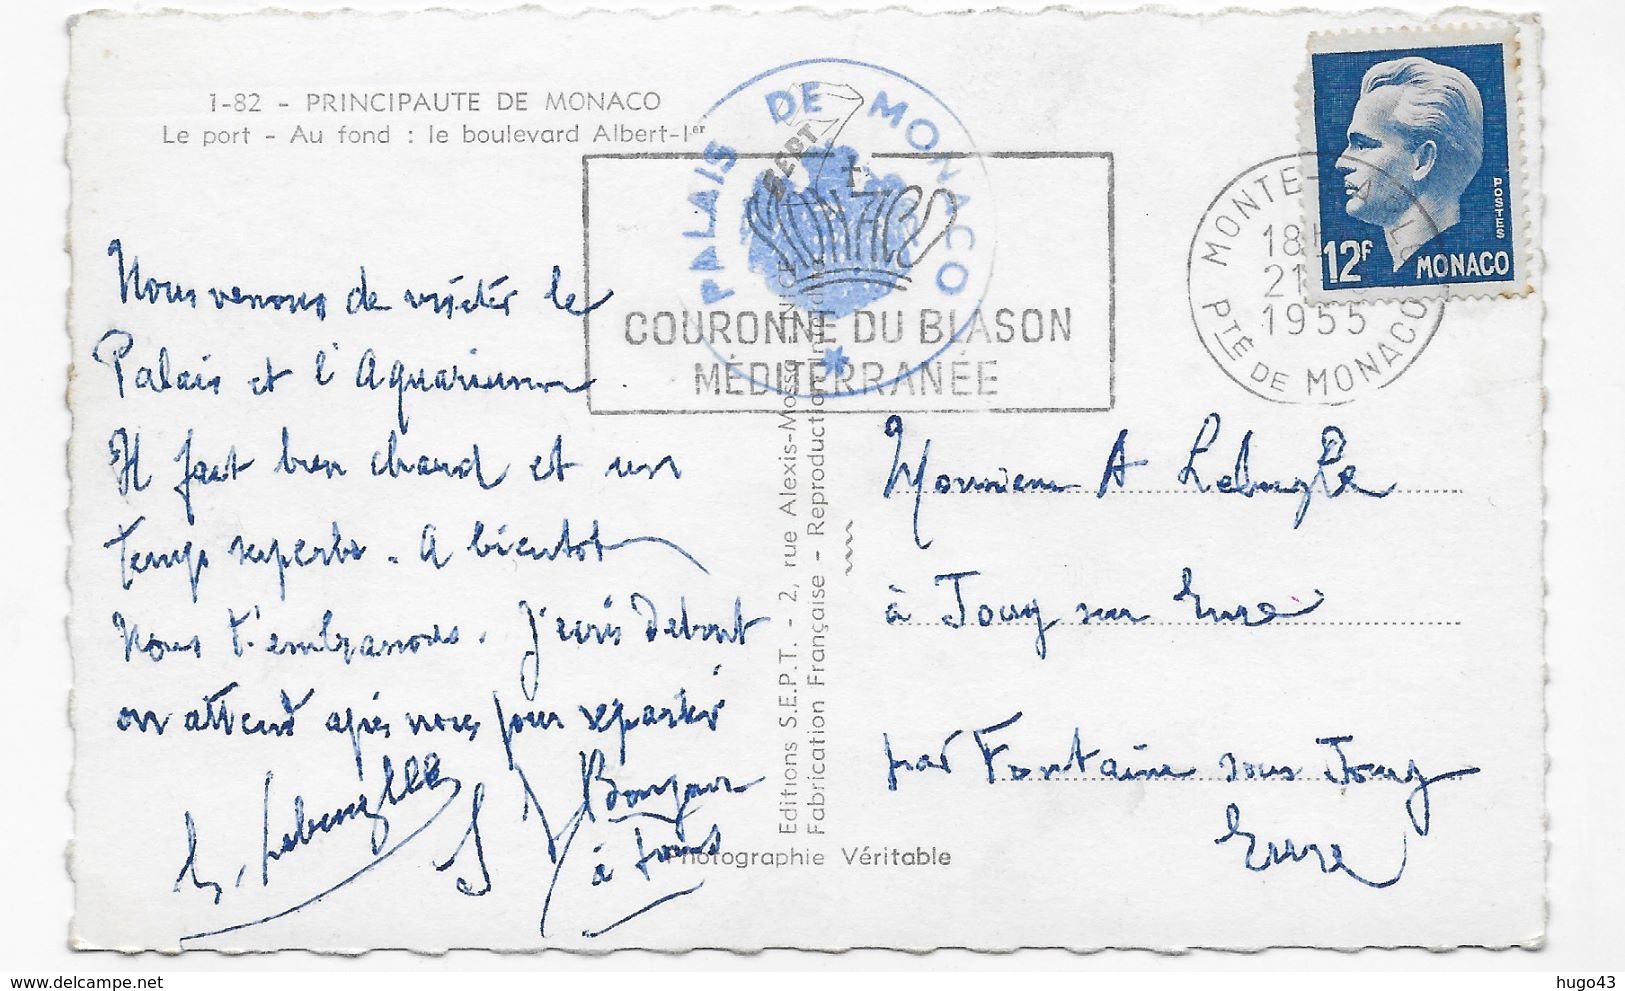 1-82 - PRINCIPAUTE DE MONACO
Le port - Au fond : le boulevard Albert-Ier
PALAIS DE MONACO
SEPT
COURONNE DU BLASON
MÉDITERRANÉE
MONTE-CARLO
18H
21
1955
PTÉ DE MONACO
POSTES
12F MONACO
Nous venons de visiter le
Palais et l'Aquarium.
Il fait bien chaud et un
temps superbe. A bientot
Nous t'embrassons. J'ecris debout
on attend après nous pour repartir
Bonjour
à tous
Editions S.E.P.T. - 2, rue Alexis-Mossa
Fabrication Française - Reproduction
Photographie Véritable
Monsieur A
à Jouy sur Eure
par Fontaine sous Jouy
Eure
hugo43